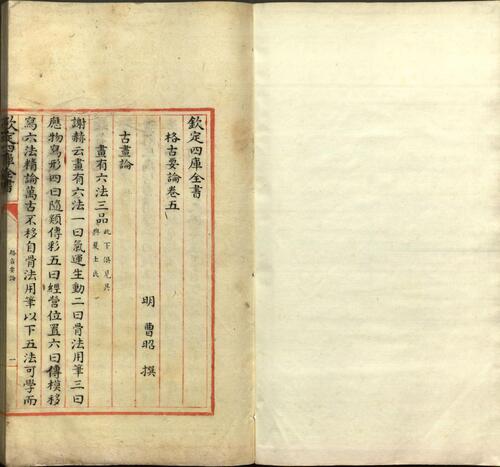 欽定四庫全書
格古要論卷五
明 曹昭 撰
古畫論
畫有六法三品
此下俱見吳
興夏士氏
謝赫云畫有六法一曰氣運生動二曰骨法用筆三曰
應物寫形四曰隨類傳彩五曰經營位置六曰傳模移
寫六法精論萬古不移自骨法用筆以下五法可學而
欽定四庫全書
格古要論
一